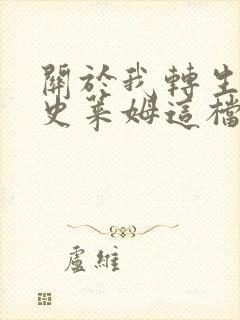 關於我轉生
史萊姆這檔
盧維